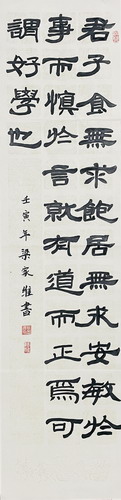 君子食無求飽居無求安敏於
事而慎於言就有道而正焉可
謂好學也
壬寅年梁家雅書